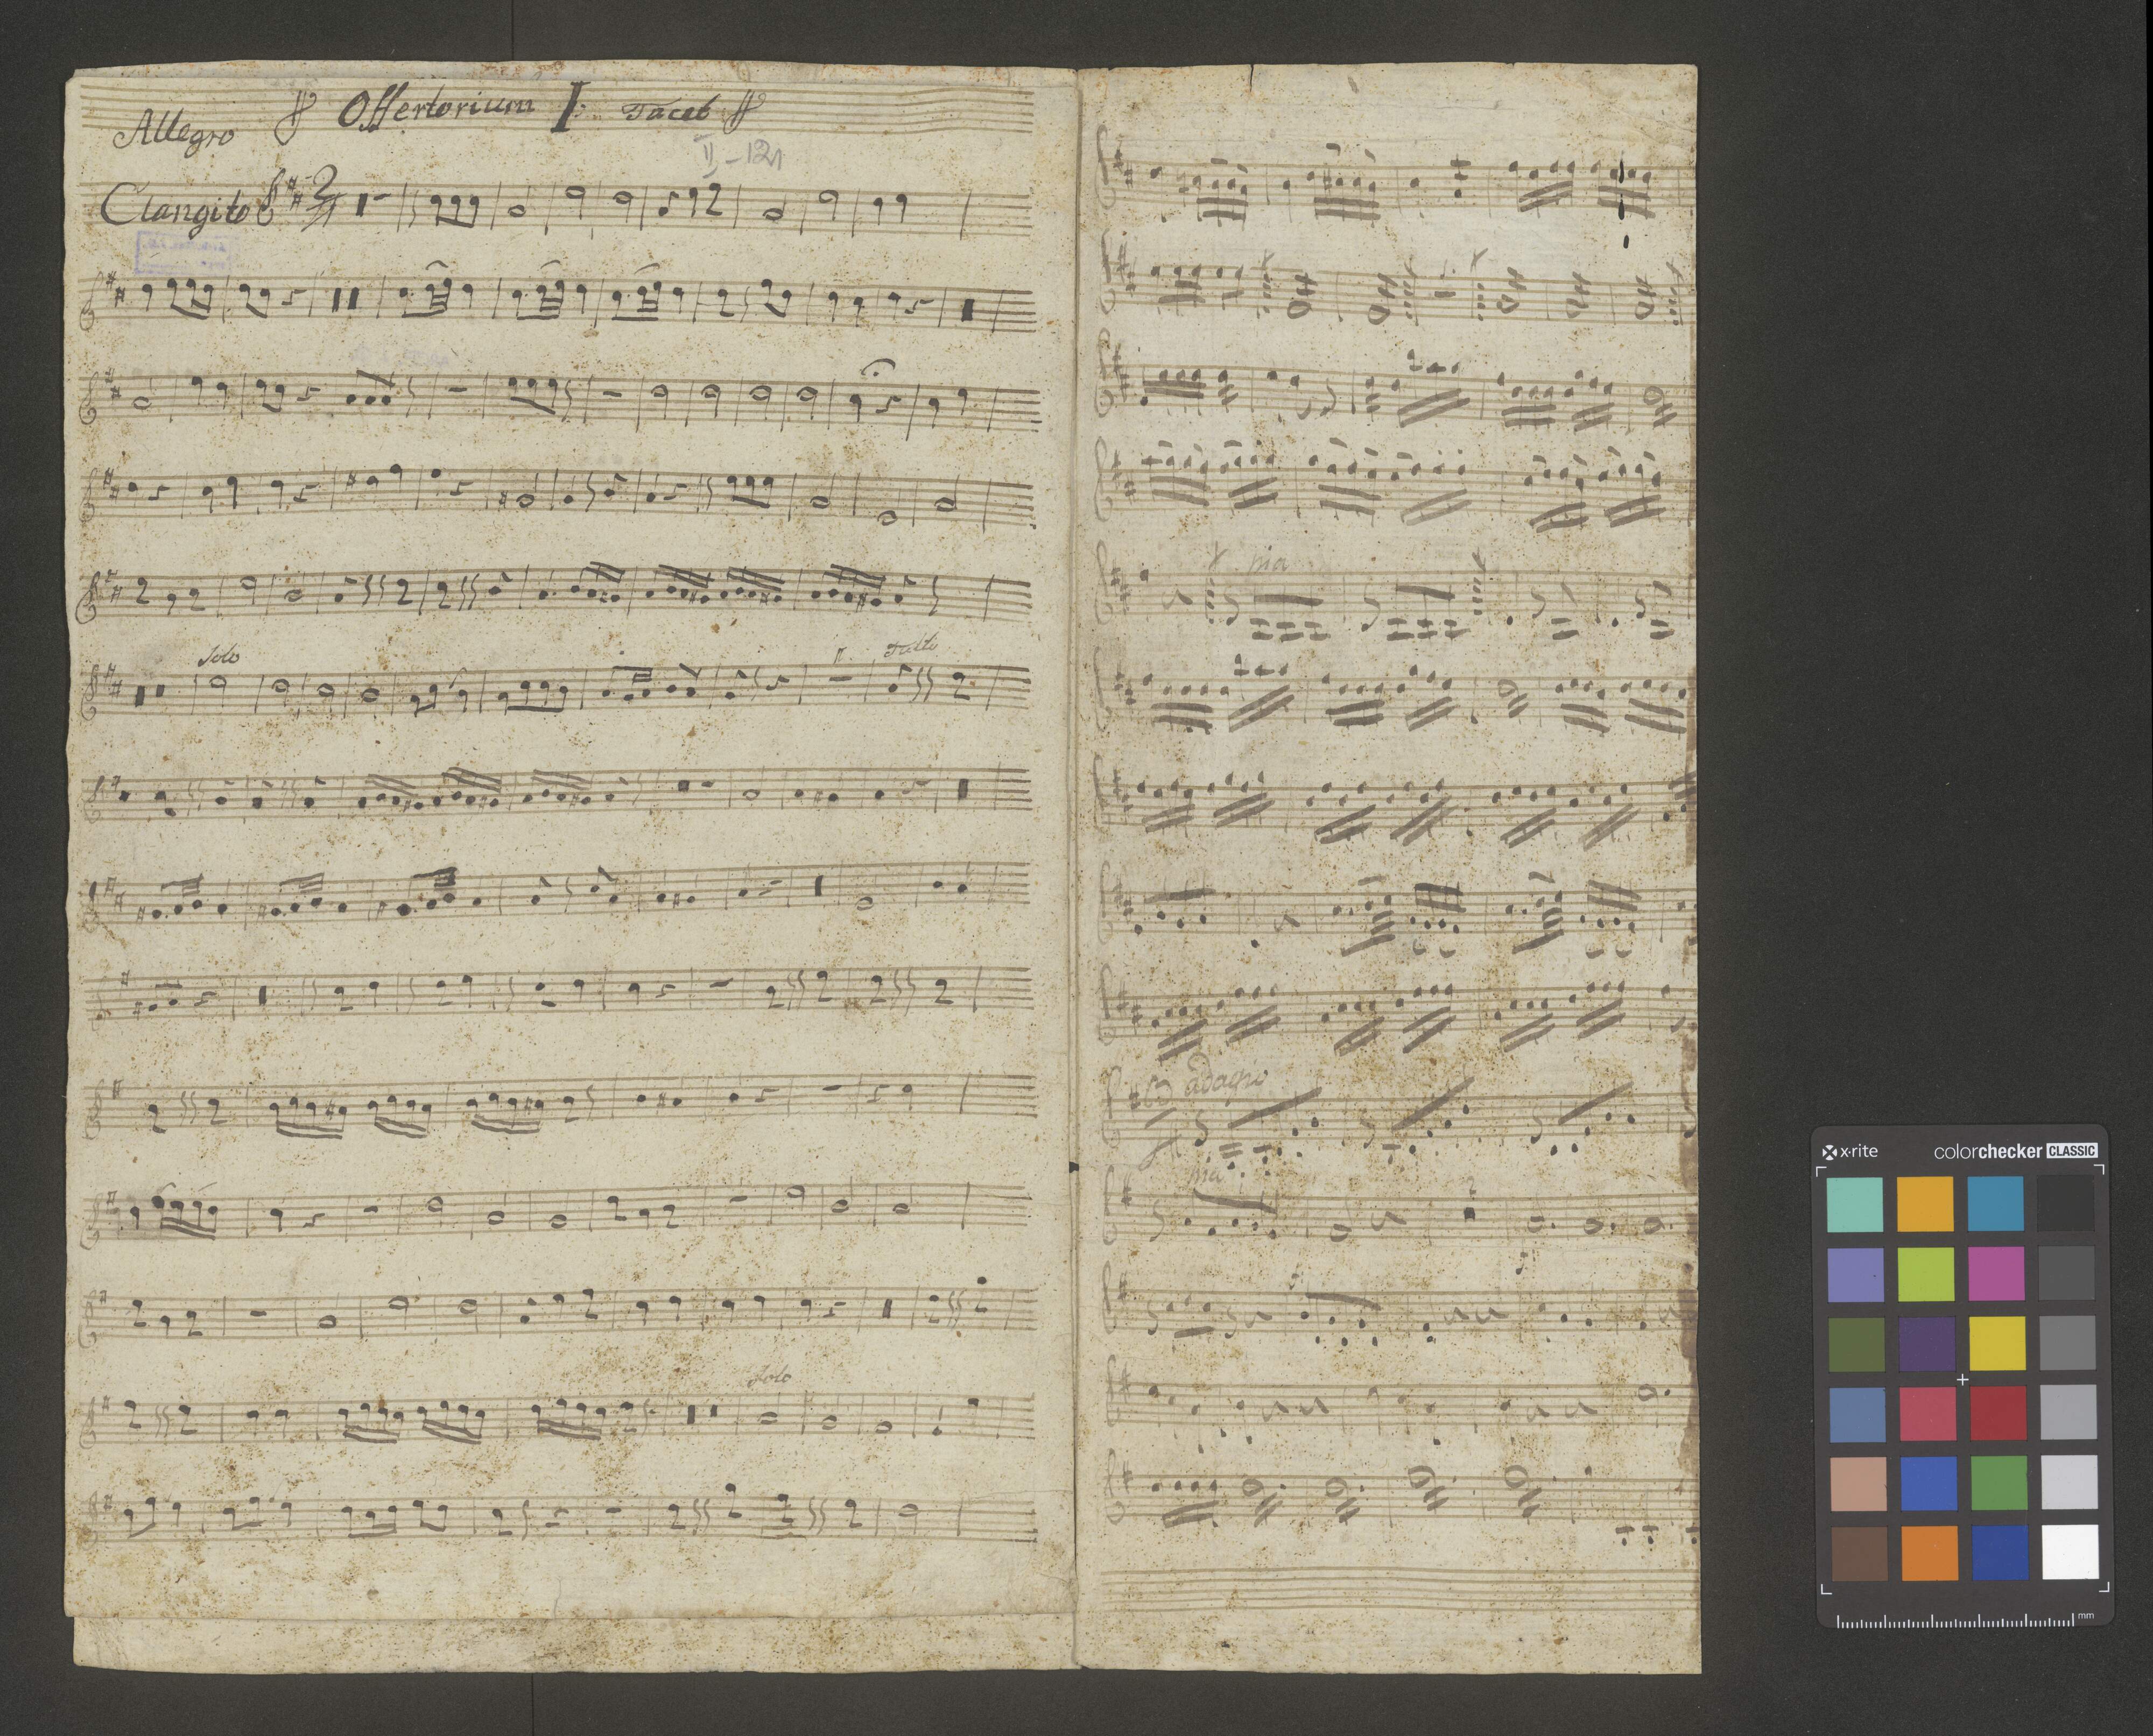 Offertorium I. Tacet
Allegro
II - 121
Clangite
Solo
Tutti
Solo
pia
adagio
pia
2
x-rite
colorchecker CLASSIC
mm